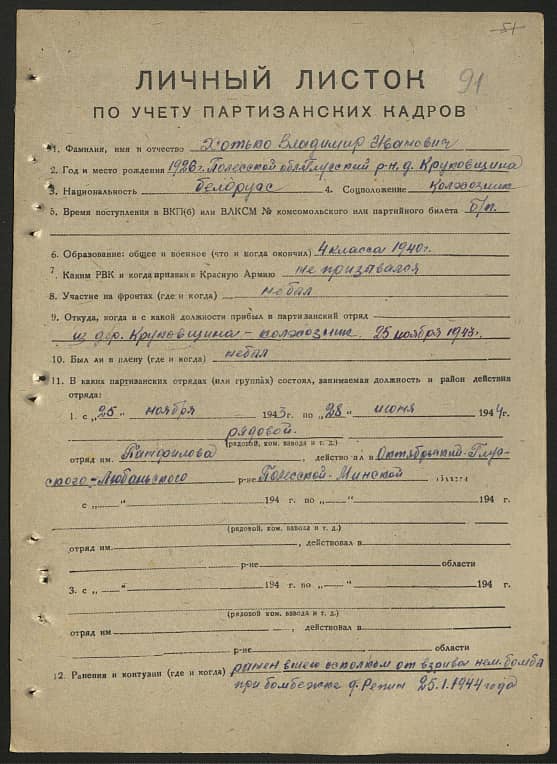 51
91
ЛИЧНЫЙ ЛИСТОК
ПО УЧЕТУ ПАРТИЗАНСКИХ КАДРОВ
1. Фамилия, имя и отчество Хотько Владимир Иванович
2. Год и место рождения 1926 г. Полесской обл. Глусский р-н. д. Круковщина
3. Национальность белорус 4. Соцположение колхозник
5. Время поступления в ВКП(б) или ВЛКСМ № комсомольского или партийного билета б/п.
6. Образование: общее и военное (что и когда окончил) 4 класса 1940 г.
7. Каким РВК и когда призван в Красную Армию не призывался
8. Участие на фронтах (где и когда) небал
9. Откуда, когда и с какой должности прибыл в партизанский отряд
из дер. Круковщина - колхозник 25 ноября 1943 г.
10. Был ли в плену (где и когда) небал
11. В каких партизанских отрядах (или группах) состоял, занимаемая должность и район действия
отряда:
1. с „25" ноября 1943 г. по „28" июня 1944 г.
рядовой.
(рядовой, ком. взвода и т. д.)
отряд им. Панфилова, действовал в Октябрьский-Глус-
ского-Любаньского р-не Полесской-Минской области
с „ " 194 г. по „ " 194 г.
(рядовой, ком. взвода и т. д.)
отряд им. , действовал в
р-не области
3. с „ " 194 г. по „ " 194 г.
(рядовой, ком. взвода и т. д.)
отряд им , действовал в
р-не области
12. Ранения и контузии (где и когда) ранен в шею осколком от взрива нем. бомба
при бомбежке д. Репин 25.1.1944 года